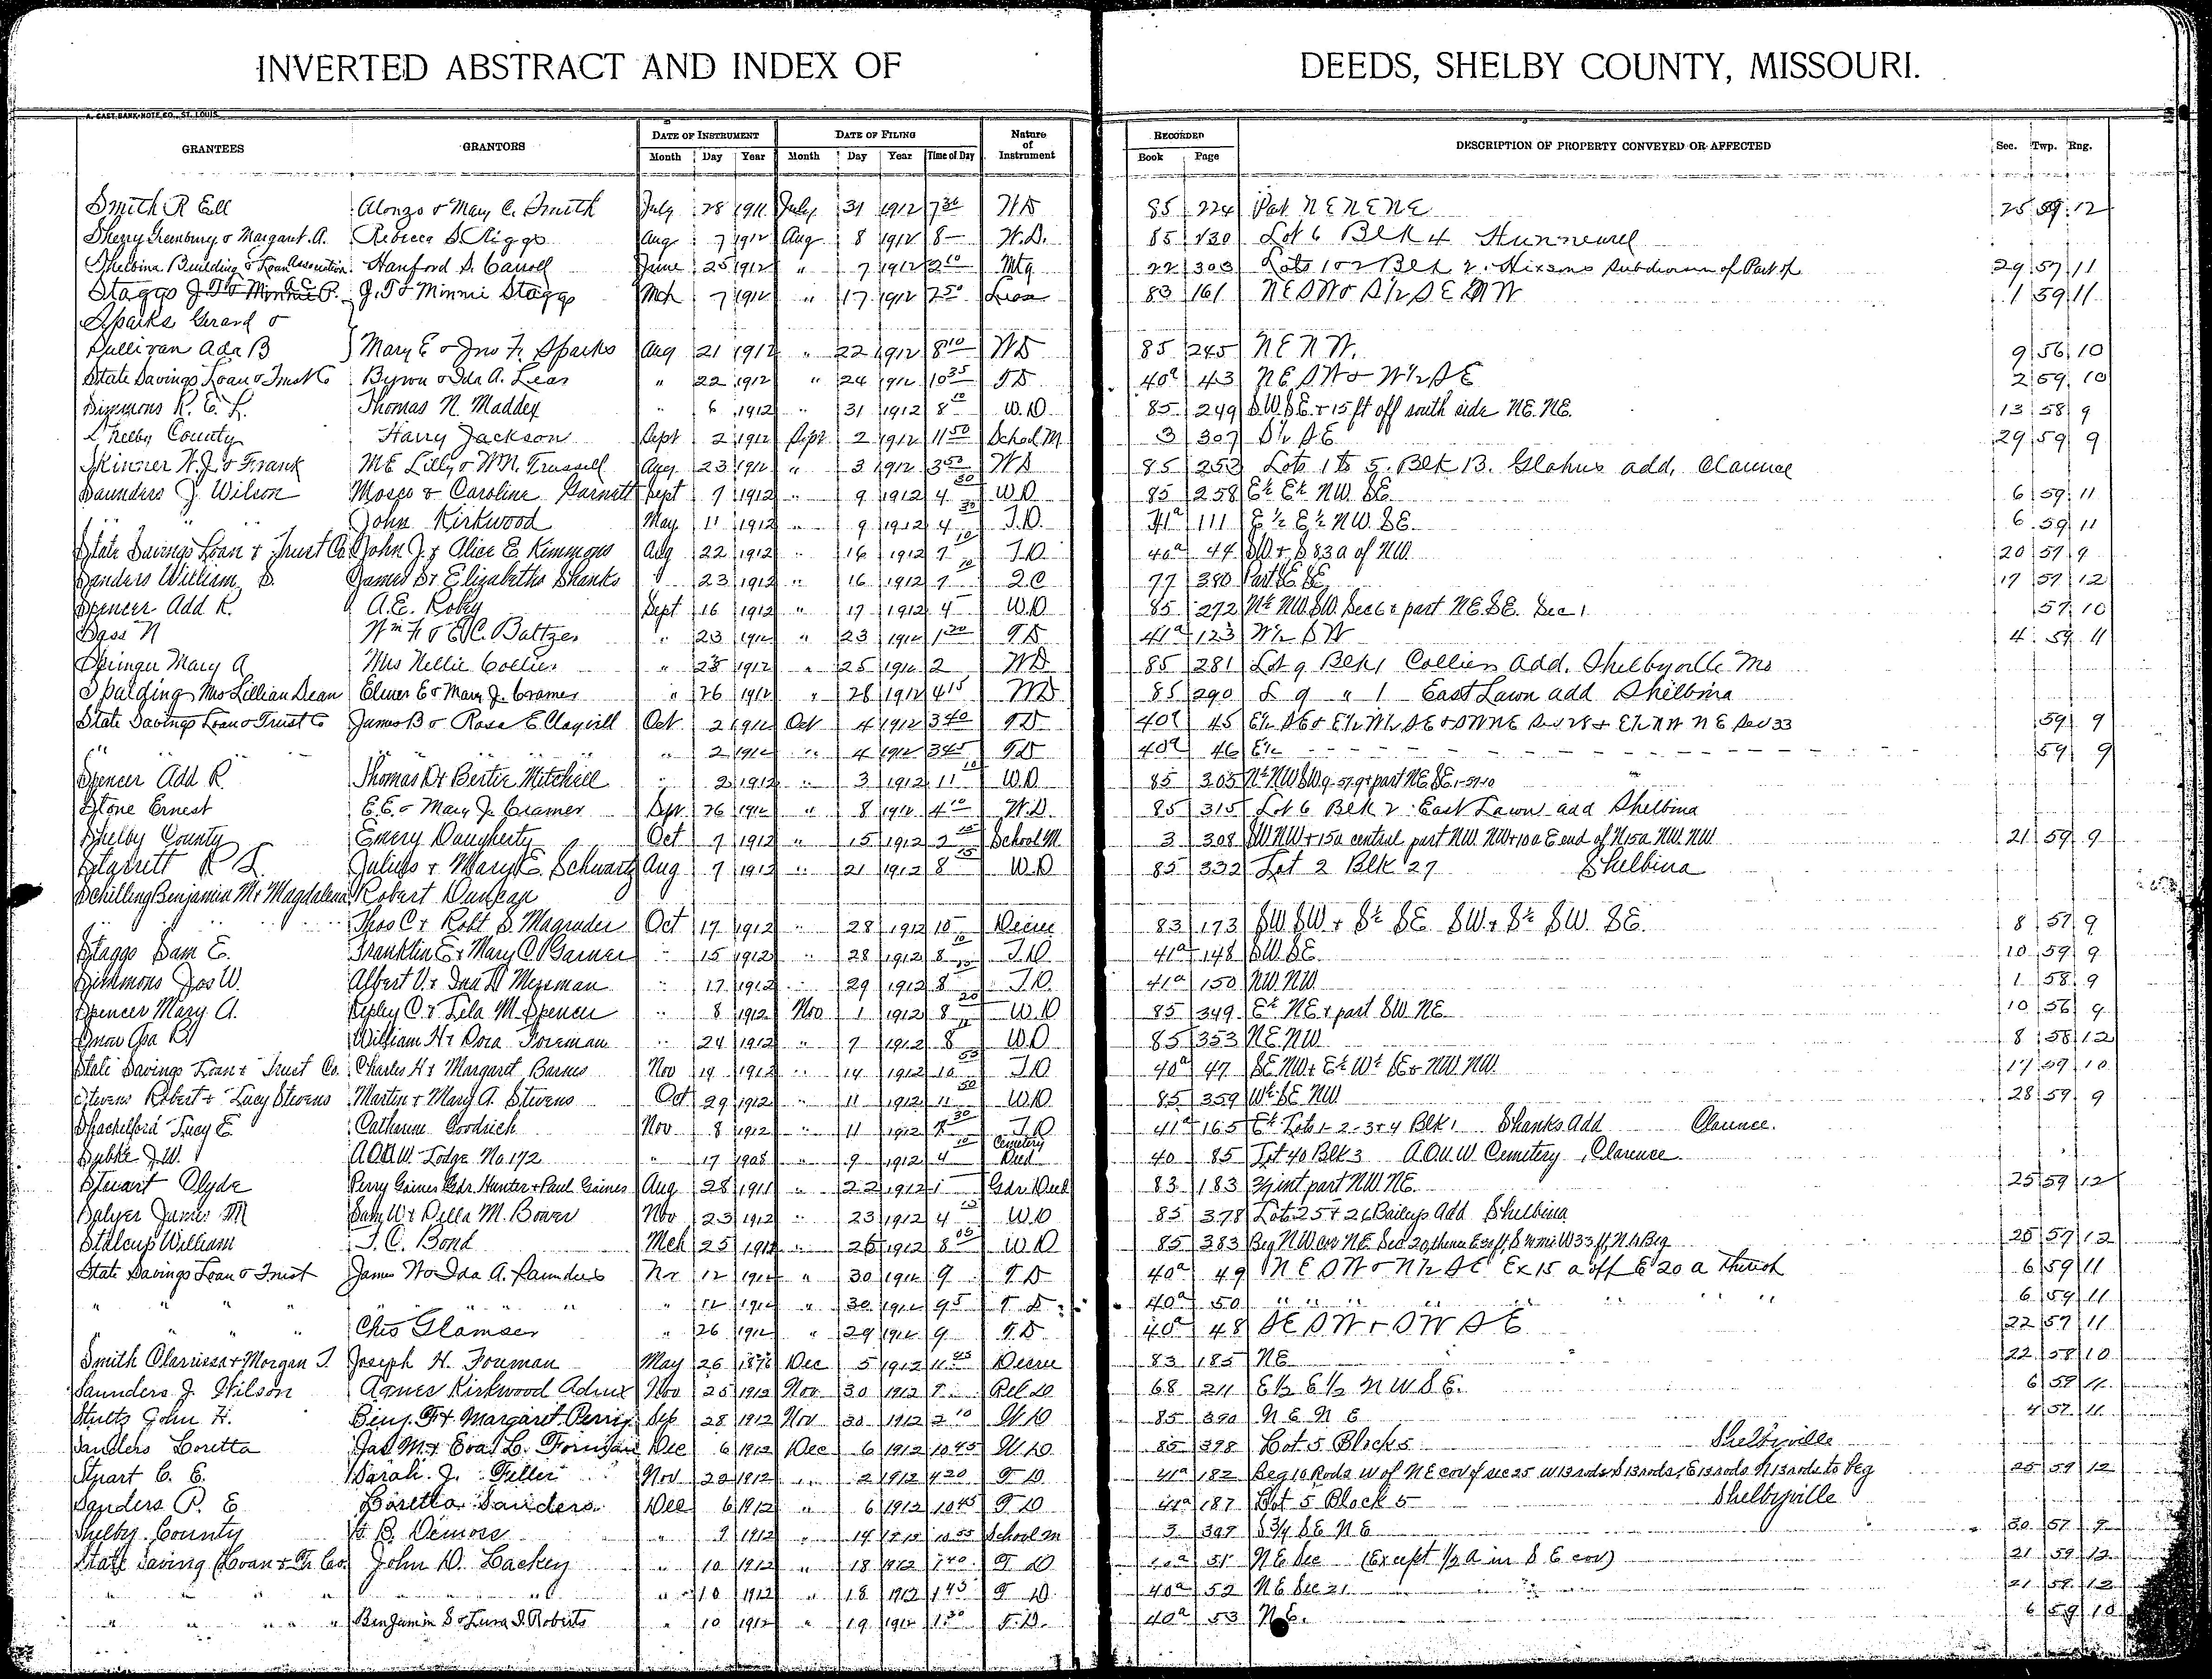 INVERTED ABSTRACT AND INDEX OF DEEDS, SHELBY COUNTY, MISSOURI.
A. GAST BANK NOTE CO., ST. LOUIS
GRANTEES GRANTORS DATE OF INSTRUMENT DATE OF FILING Nature of Instrument RECORDED DESCRIPTION OF PROPERTY CONVEYED OR AFFECTED Sec. Twp. Rng.
Month Day Year Month Day Year Time of Day Book Page
Smith R Ell Alonzo & Mary C. Smith July 28 1911 July 31 1912 7 30 WD 85 224 Part NE NE NE 25 59 12
Sherry Greenbury & Margaret A. Rebecca S. Riggs Aug 7 1912 Aug 8 1912 8 W.D. 85 Lot 6 Blk 4 Hunnewell
Shelbina Building & Loan Association Hanford S. Carroll June 25 1912 " 7 1912 2 10 Mtg 22 303 Lots 1 & 2 Blk 2. Hixsons Subdivision of Part of 29 57 11
Staggs J.T. & Minnie P. J.T. & Minnie Staggs Mch 7 1912 " 17 1912 2 50 83 161 1 59 11
Sparks Gerard &
Sullivan Ada B } Mary E & Jno F. Sparks Aug 21 1912 " 22 1912 8 10 WD 85 245 NE NW. 9 56 10
State Savings Loan & Trust Co Byron & Ida A. Lear " 22 1912 " 24 1912 10 35 TD 40a 43 NE SW & W½ SE 2 59 10
Simmons R. E. L. Thomas N. Maddex " 6 1912 " 31 1912 8 10 W.D 85 249 S.W. S.E. & 15 ft off south side NE. NE. 13 58 9
Shelby County Harry Jackson Sept 2 1912 Sept 2 1912 11 50 School M. 3 307 S½ SE 29 59 9
Skinner W.J. & Frank M E Lilly & W.M. Trussell Aug 23 1912 " 3 1912 3 50 WD 85 253 Lots 1 to 5. Blk 13. Glahns add, Clarence
Saunders J. Wilson Mosco & Caroline Garnett Sept 7 1912 " 9 1912 4 30 W.D 85 258 E½ E½ NW. SE. 6 59 11
" " John Kirkwood May 11 1912 " 9 1912 4 30 T.D. 41a 111 E½ E½ N.W. S.E. 6 59 11
State Savings Loan & Trust Co John J. & Alice E. Kimmons Aug 22 1912 " 16 1912 9 10 T.D 40a 44 SW & S 83a of NW. 20 57 9
Sanders William S. James S & Elizabeth Shanks " 23 1912 " 16 1912 9 10 2C 77 380 Part SE SE 17 57 12
Spencer Add R. A.E. Roby Sept 16 1912 " 17 1912 4 W.D 85 272 N½ N.W. S.W. Sec 6 & part N.E. S.E. Sec 1 57 10
Sass N Wm H & E.C. Baltzer " 23 1912 " 23 1912 1 20 TD 41a 123 W½ SW 4 59 11
Springer Mary A Mrs Nellie Collier " 23 1912 " 25 1912 2 WD 85 281 Lot 9 Blk 1 Colliers Add. Shelbyville Mo
Spalding Mrs Lillian Dean Elmer E & Mary J. Cramer " 26 1912 " 28 1912 4 15 WD 85 290 L 9 " 1 East Lawn add Shelbina
State Savings Loan & Trust Co James B & Rosa E Claywell Oct 2 1912 Oct 4 1912 3 40 TD 40a 45 E½ SE & E½ W½ SE & SW NE Sec 28 & E½ NW NE Sec 33 59 9
" " " " " " " 2 1912 " 4 1912 3 45 TD 40a 46 Etc 59 9
Spencer Add R. Thomas D & Bertie Mitchell " 2 1912 " 3 1912 11 10 W.D 85 305 N½ NW SW 9-57-9 & part NE. SE. 1-57-10
Stone Ernest E.E. & Mary J. Cramer Sept 26 1912 " 8 1912 4 10 W.D. 85 315 Lot 6 Blk 2 East Lawn add Shelbina
Shelby County Emery Daugherty Oct 7 1912 " 15 1912 2 35 School M. 3 308 SW NW & 15a central part NW. NW & 10a E end of N 15a NW. NW 21 59 9
Starrett R S. Julius & Mary E. Schwartz Aug 9 1912 " 21 1912 8 35 W.D 85 332 Lot 2 Blk 27 Shelbina
Schilling Benjamin M & Magdalena Robert Duncan
Thos C & Robt S. Magruder Oct 17 1912 " 28 1912 10 Decree 83 173 SW SW & S½ SE SW & S½ SW. SE. 8 57 9
Staggs Sam E. Franklin E & Mary C. Garner " 15 1912 " 28 1912 8 10 T.D 41a 148 SW SE 10 59 9
Simmons Jos W. Albert V. & Ina D Mezeman " 17 1912 " 29 1912 8 T.D. 41a 150 NW. NW. 1 58 9
Spencer Mary A. Repley O. & Lela M. Spencer " 8 1912 Nov 1 1912 8 20 W.D 85 349 E½ NE & part SW NE 10 56 9
Snow Asa R William H & Dora Foreman " 24 1912 " 7 1912 8 W.D 85 353 NE. NW 8 58 12
State Savings Loan & Trust Co. Charles H & Margaret Barnes Nov 14 1912 " 14 1912 10 T.D 40a 47 SE NW & E½ W½ SE & NW. NW. 17 59 10
Stevens Robert & Lucy Stevens Martin & Mary A. Stevens Oct 29 1912 " 11 1912 11 50 W.D 85 359 W½ SE NW 28 59 9
Shackelford Lucy E. Catharine Goodrich Nov 8 1912 " 11 1912 8 30 T.D 41a 165 E½ Lots 1-2-3 & 4 Blk 1 Shanks Add Clarence.
J.W. A.O.U.W. Lodge No. 172 " 17 1908 " 9 1912 4 10 Cemetery Deed 40 85 Lot 40 Blk 3 A.O.U.W. Cemetery, Clarence
Stuart Clyde Perry Gaines Gdr. Hunter & Paul Gaines Aug 28 1911 " 22 1912 1 Gdr Deed 83 183 int part NW. NE. 25 59 12
Salyer James M Sam W & Della M. Bower Nov 23 1912 " 23 1912 4 W.D 85 378 Lots 25 & 26 Baileys Add Shelbina
Stalcup William T. C. Bond Mch 25 1912 " 26 1912 8 05 W.D 85 383 Beg NW cor NE Sec 20, thence 57 12
State Savings Loan & Trust James W & Ida A. Saunders Nov 12 1912 " 30 1912 9 TD 40a 49 NE SW & N½ SE Ex 15 a off E 20 a thereof 6 59 11
" " " " 12 1912 " 30 1912 9 5 T D 40a 50 " " " " " " 6 59 11
" " " Chris Glamser " 26 1912 " 29 1912 9 T.D. 40a 48 SE SW & SW SE 22 57 11
Smith Clarissa & Morgan T. Joseph H. Foreman May 26 1876 Dec 5 1912 11 25 Decree 83 185 NE 22 58 10
Saunders J. Wilson Agnes Kirkwood Admx Nov 25 1912 Nov 30 1912 9 Rel D 68 211 E½ E½ N W S E. 6 59 11
Stultz John H. Benj. F & Margaret Perry Sep 28 1912 Nov 30 1912 2 10 W D 85 390 N E N E 4 57 11
Sanders Loretta Jas M. & Eva L. Foreman Dec 6 1912 Dec 6 1912 10 45 W D 85 398 Lot 5 Block 5 Shelbyville
Stuart C. E. Sarah. J. Feller Nov 20 1912 " 2 1912 4 20 T D 41a 182 Beg 10 Rods W of N E cor of sec 25 W 13 rods S 13 rods, E 13 rods N 13 rods to Beg 25 59 12
Sanders P. E Loretta Sanders Dec 6 1912 " 6 1912 10 45 T D 41a 187 Lot 5 Block 5 Shelbyville
Shelby County B. Demoss " 9 1912 " 14 1912 10 55 School M 3 397 S ¾ SE NE 30 57 9
State Saving Loan & Tr Co. John D. Lackey " 10 1912 " 18 1912 1 40 T D 40a 51 NE Sec (Except ½ A in S E cor) 21 59 12
" " " " " " 10 1912 " 18 1912 1 45 T D 40a 52 NE Sec 21 21 59 12
" " " " Benjamin S & Luna I. Roberts " 10 1912 " 19 1912 1 30 T.D. 40a 53 N.E. 6 59 10